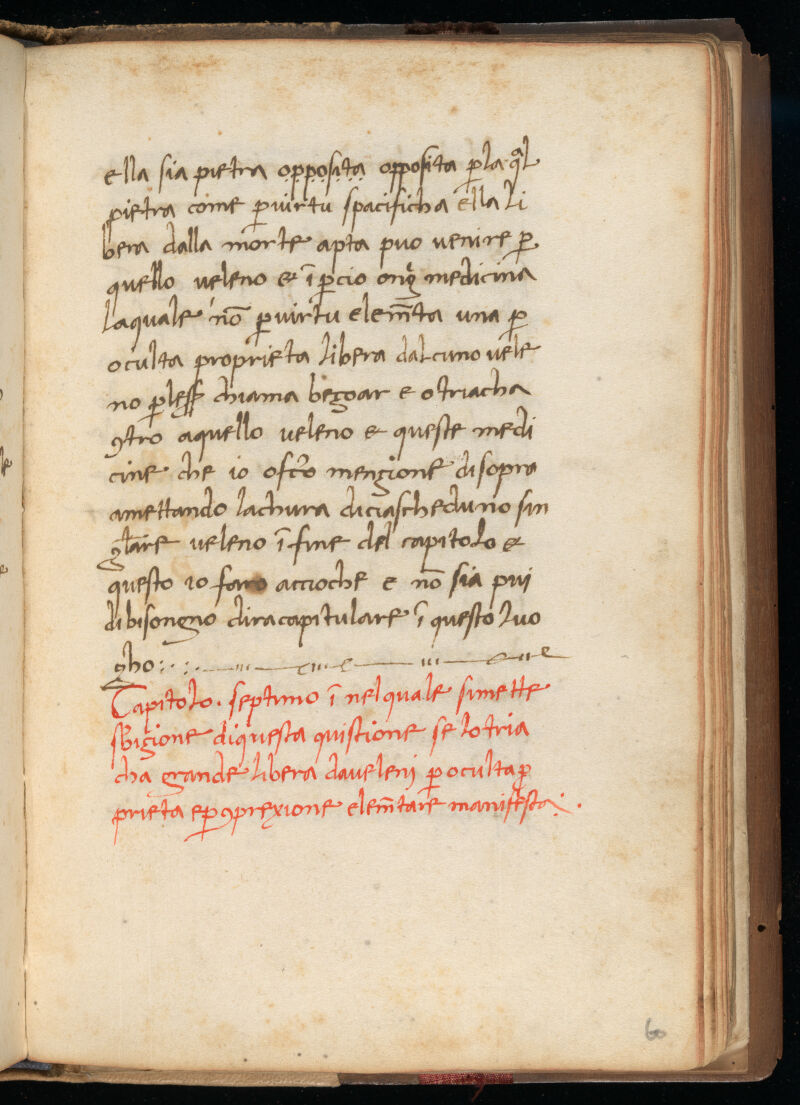 ella sia pietra opposita opposita p̱ la q̄l
pietra come p̱ virtu spacificha ella li
bera dalla morte apta puo venire p̱
quello veleno et ī p̱cio ong medicina
laquale nō p̱ virtu elem̄ta una p̱
oculta proprieta libera dalcuno vele
no p̱ less chiama beçoar e otriacha
ꝯtro aquello veleno et queste medi
cine che io mençione disopra
amettando lachura diciascheduno sin
glāre veleno ī fine del capitolo et
questo io faro accioche e nō sia piu
dibisongno diracapitulare ī questo luo
gho
Capitolo septimo ī nelquale simette
diquesta quistione se lotria
cha grande libera daveleni p̱ oculta p̱
prieta e p̱ ꝯprexione elem̄tare manifesta
60